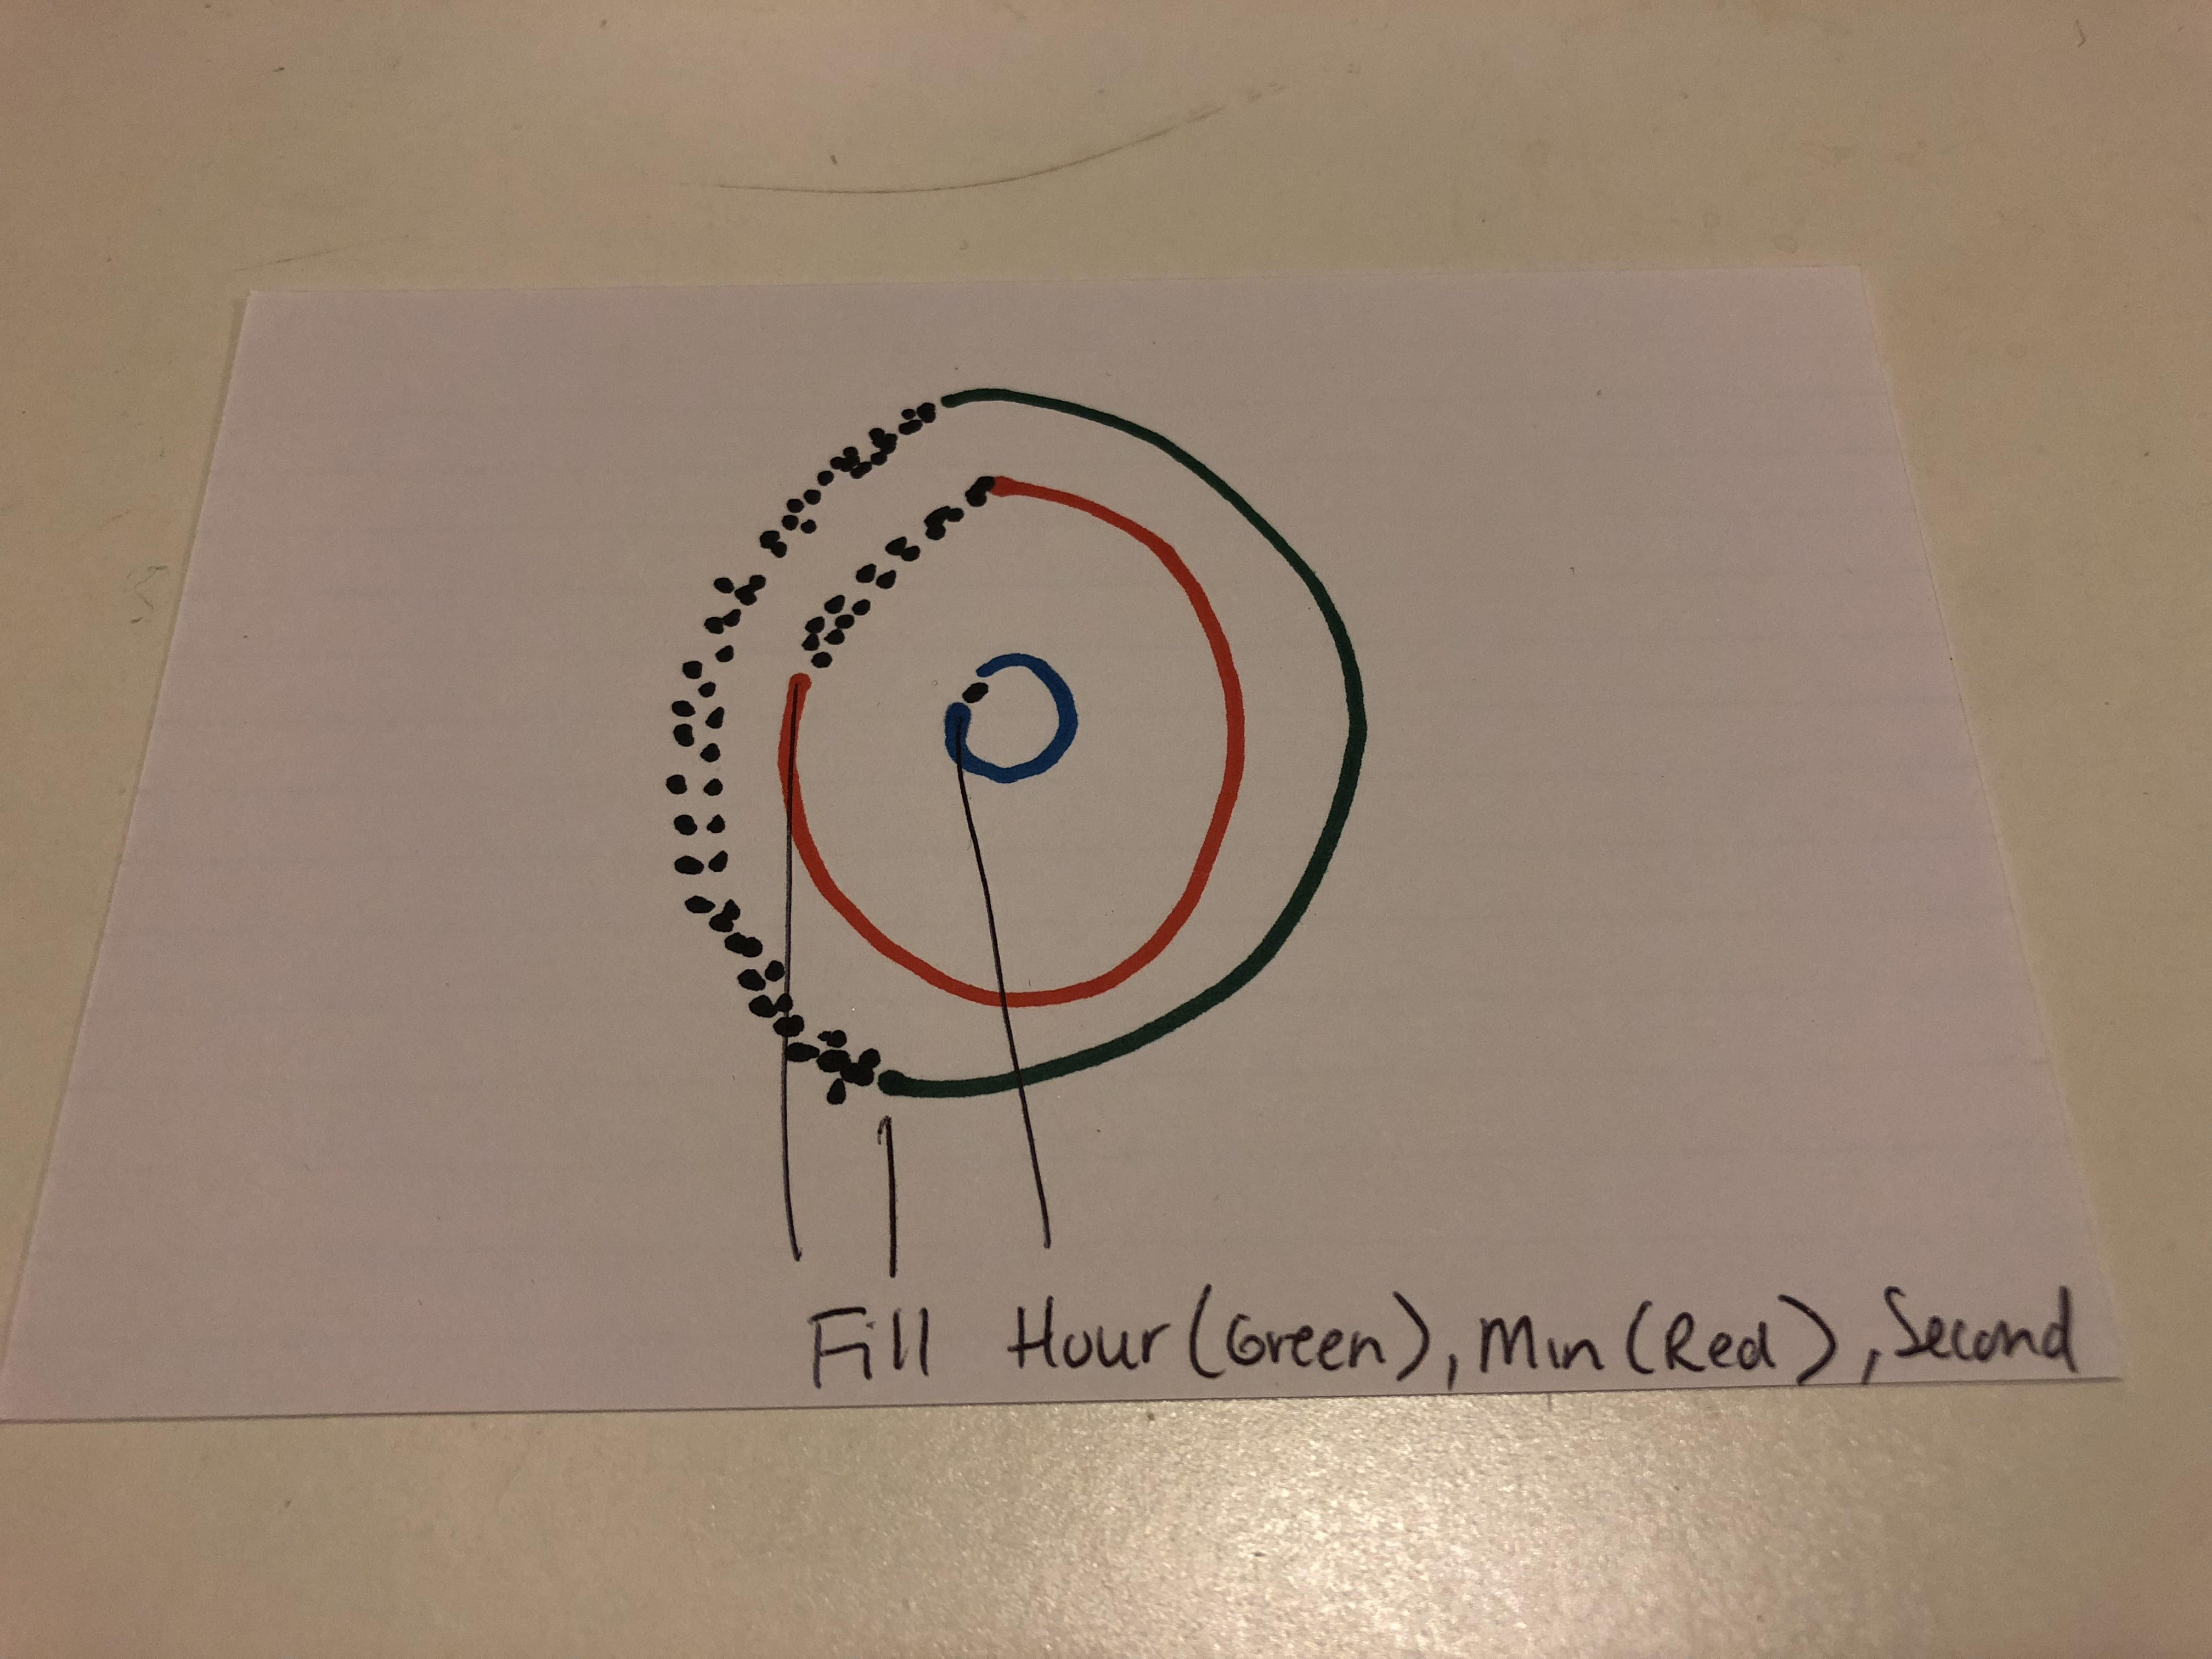 Fill Hour (Green), Min (Red), Second